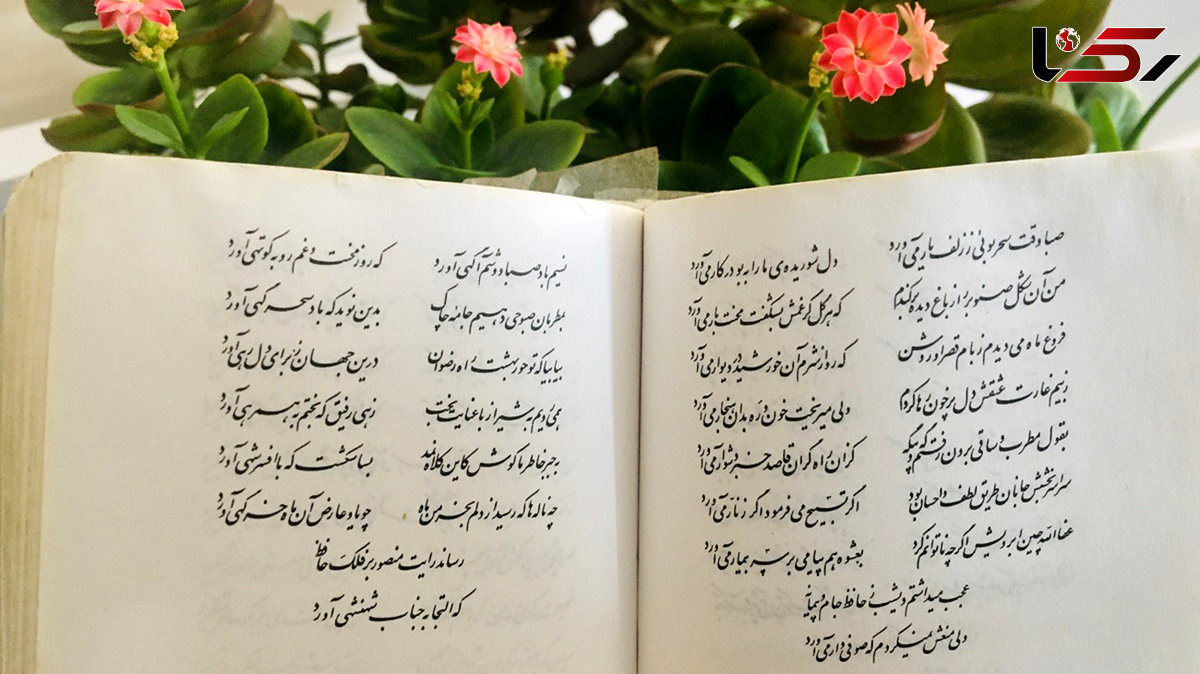 رکنا
صبا وقت سحر بوئی ز زلف یار می آورد دل شوریده‌ی ما را به بو در کار می آورد
من آن شکل صنوبر را ز باغ دیده برکندم که هر گل کز غمش بشکفت محنت بار می آورد
فروغ ماه می دیدم ز بام قصر او روشن که رو از شرم آن خورشید در دیوار می آورد
ز بیم غارت عشقش دل پرخون رها کردم ولی میریخت خون و ره بدان هنجار می آورد
بقول مطرب و ساقی برون رفتم گه و بیگه کزان راه گران قاصد خبر دشوار می آورد
سراسر بخشش جانان طریق لطف و احسان بود اگر تسبیح می فرمود اگر زنار می آورد
عفا الله چین ابرویش اگر چه ناتوانم کرد بعشوه هم پیامی بر سر بیمار می آورد
عجب میداشتم دیشب ز حافظ جام و پیمانه
ولی منعش نمیکردم که صوفی وار می آورد
نسیم باد صبا دوشم آگهی آورد که روز محنت و غم رو به کوتهی آورد
بمطربان صبوحی دهیم جامه چاک بدین نوید که باد سحر گهی آورد
بیا بیا که تو حور بهشت را رضوان درین جهان ز برای دل رهی آورد
همی رویم بشیراز با عنایت بخت زهی رفیق که بختم به همرهی آورد
به جبر خاطر ما کوش کاین کلاه نمد بسا شکست که با افسر شهی آورد
چه ناله ها که رسید از دلم بخرمن ماه چو یاد عارض آن ماه خرگهی آورد
رساند رایت منصور بر فلک حافظ
که التجا به جناب شهنشهی آورد